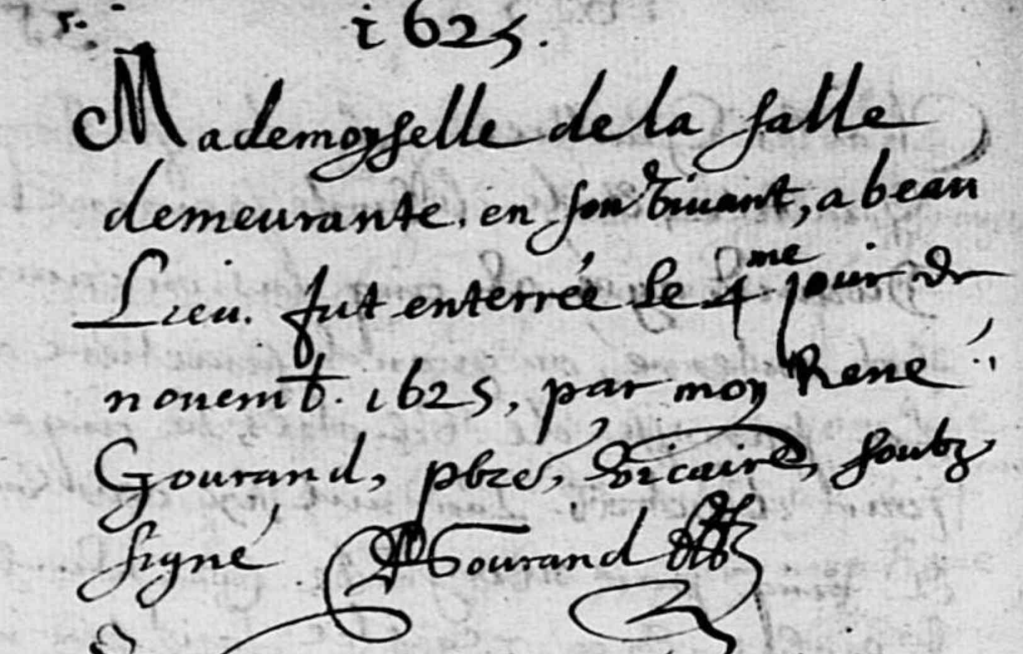 1625.
Mademoyselle de la salle
demeurante. en son vivant, a beau
Lieu. fut enterrée le 4me jour de
novemb. 1625, par moy René
Gourand, pbre, vicaire, soubz
signé RGourand